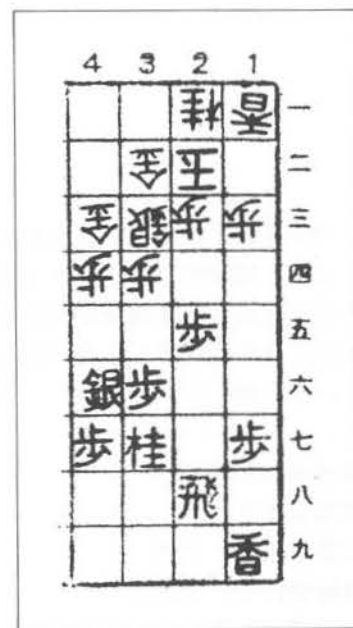 4 3 2 1
桂 香 一
金 玉 二
金 銀 歩 歩 三
歩 歩 四
歩 五
銀 歩 六
歩 桂 歩 七
飛 八
香 九